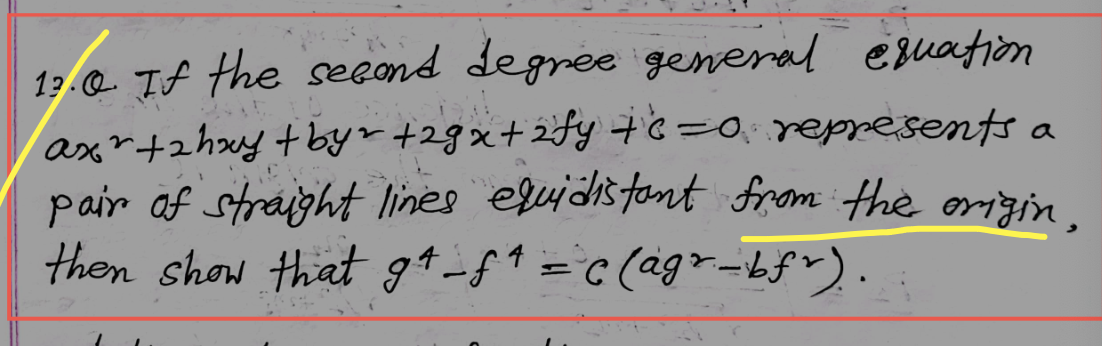 13.Q. If the second degree general equation
ax²+2hxy+by²+2gx+2fy+c=0 represents a
pair of straight lines equidistant from the origin,
then show that g⁴-f⁴=c(ag²-bf²).